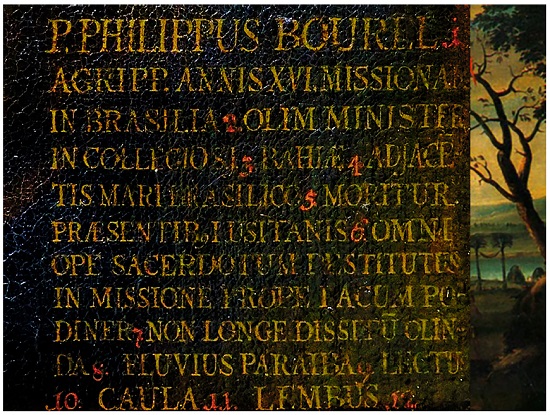 P. PHILIPPUS BOUREL 1
AGRIPP. ANNIS XVI. MISSIONAR
IN BRASILIA 2 OLIM MINISTER
IN COLLEGIO S.I. 3 BAHIÆ 4 ADJACE-
TIS MARI BRASILICO 5 MORITUR.
PRÆSENTIB. LUSITANIS 6 OMNI
OPE SACERDOTUM DESTITUTUS
IN MISSIONE PROPE LACUM PO-
DINER 7 NON LONGE DISSITŪ OLIN-
DA 8 FLUVIUS PARAIBA 9 LECTUS
10 CAULA 11 LEMBUS 12